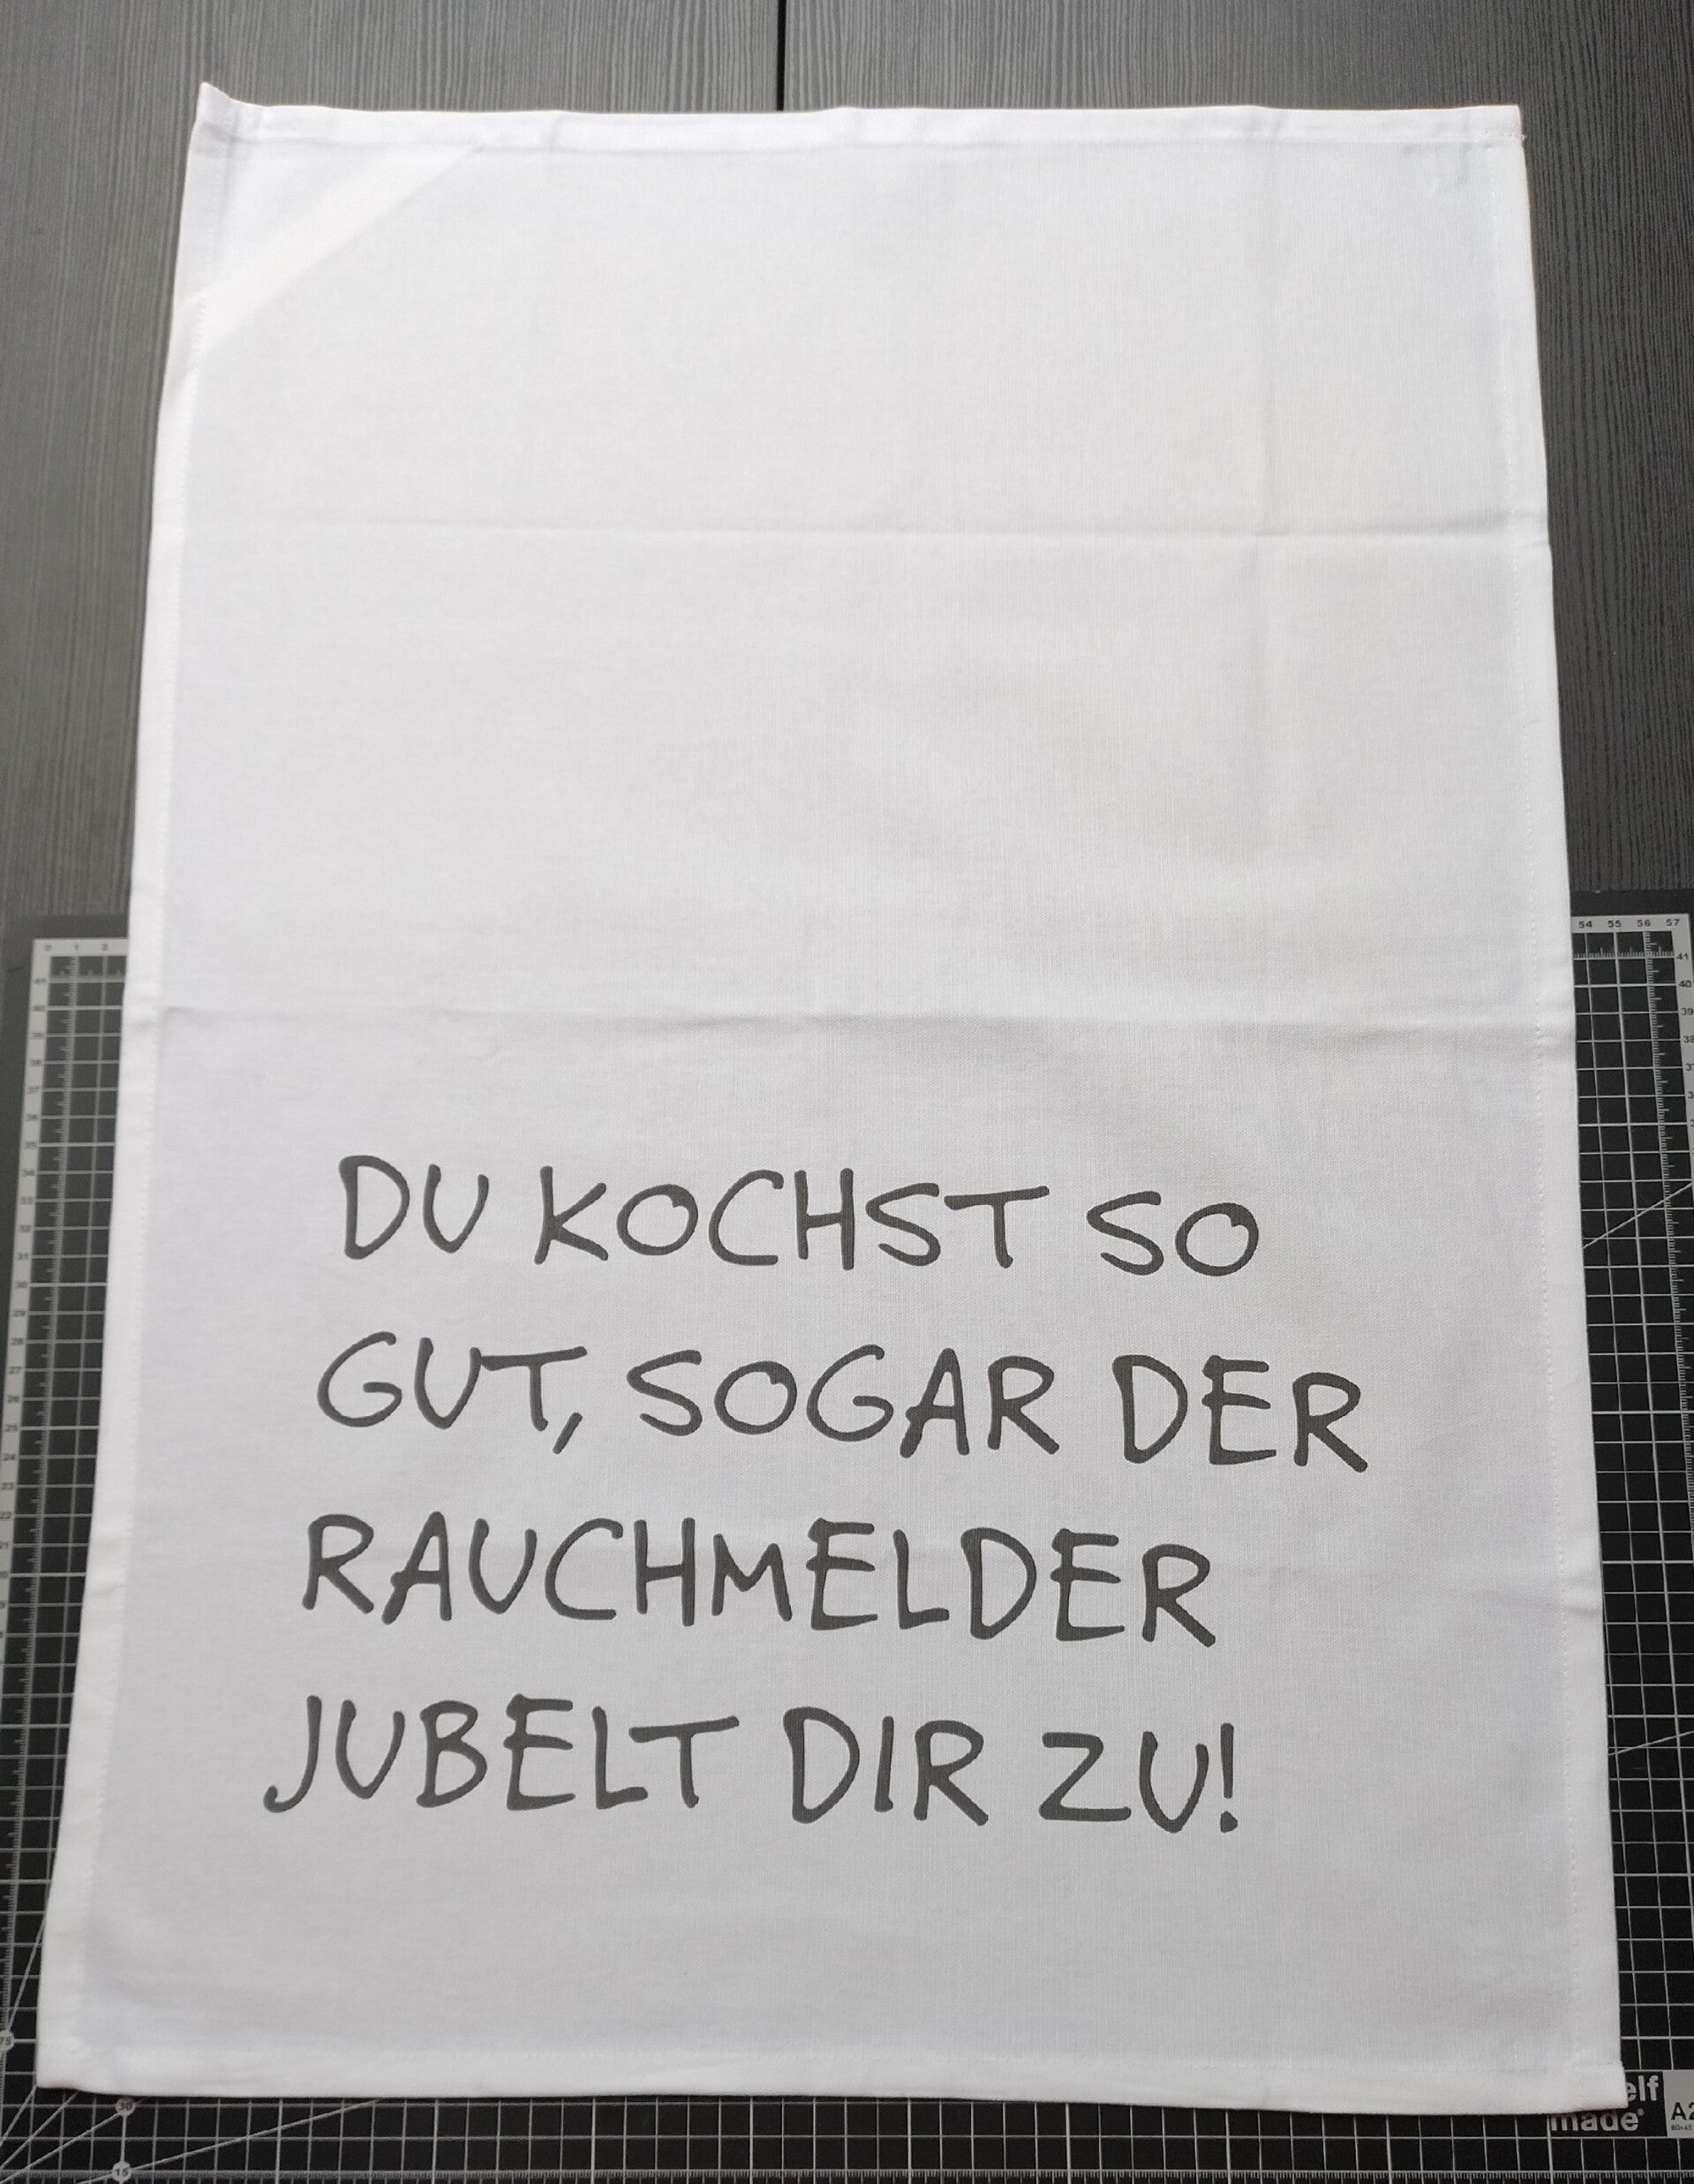 DU KOCHST SO
GUT, SOGAR DER
RAUCHMELDER
JUBELT DIR ZU!
54 55 56 57
41
40
39
elf
made
A2
0 1 2
30
15